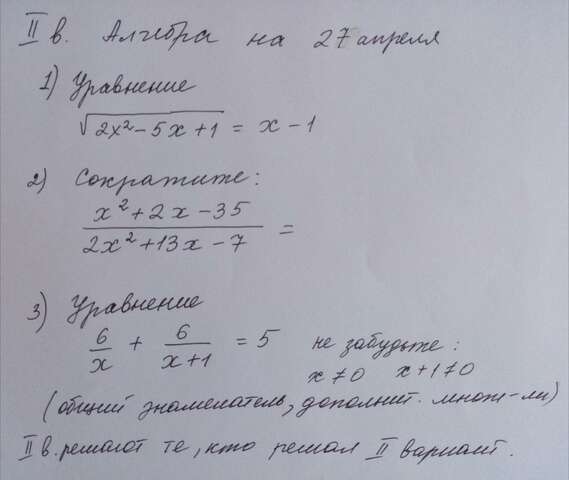 II в. Алгебра на 27 апреля
1) Уравнение
√(2x² – 5x + 1) = x – 1
2) Сократите:
x² + 2x – 35
2x² + 13x – 7 =
3) Уравнение
6/x + 6/(x+1) = 5 не забудьте:
x ≠ 0 x + 1 ≠ 0
(общий знаменатель, дополнит. множ-ли)
II в. решают те, кто решал II вариант.